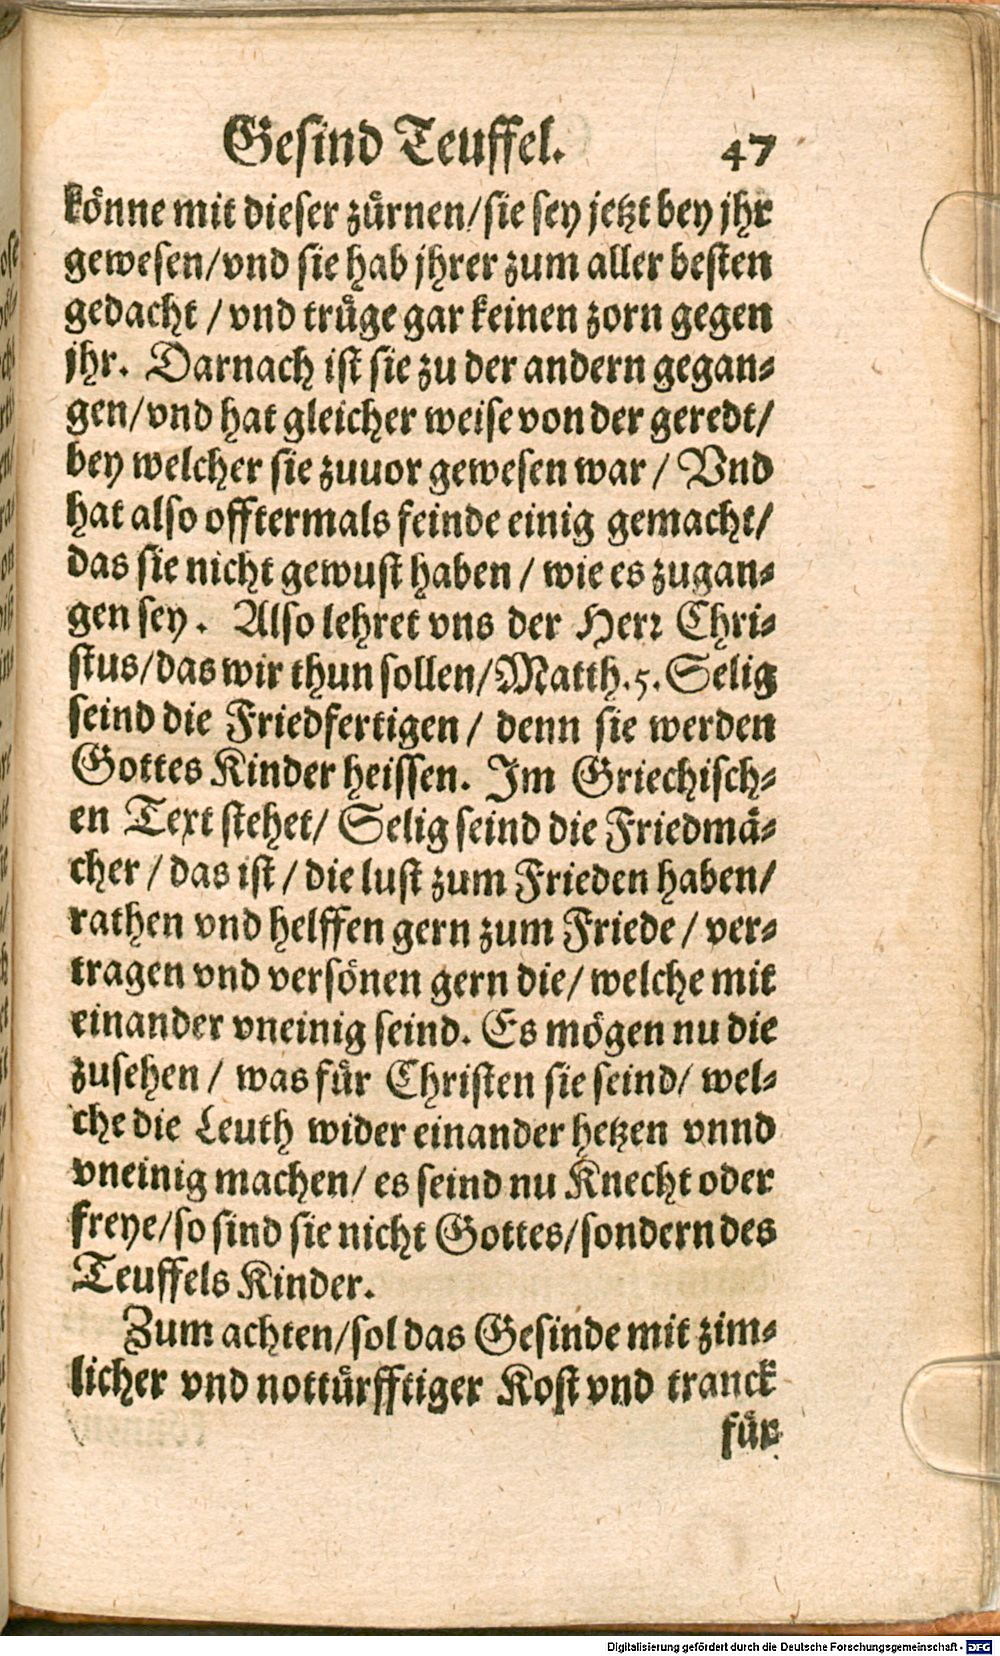 Gesind Teuffel. 47
könne mit dieser zürnen/sie sey jetzt bey jhr
gewesen/vnd sie hab jhrer zum aller besten
gedacht / vnd trüge gar keinen zorn gegen
jhr. Darnach ist sie zu der andern gegan-
gen/vnd hat gleicher weise von der geredt/
bey welcher sie zuuor gewesen war / Vnd
hat also offtermals feinde einig gemacht/
das sie nicht gewust haben / wie es zugan-
gen sey. Also lehret vns der Herr Chri-
stus/das wir thun sollen/Matth.5. Selig
seind die Friedfertigen / denn sie werden
Gottes Kinder heissen. Im Griechisch-
en Text stehet/ Selig seind die Friedmä-
cher / das ist / die lust zum Frieden haben/
rathen vnd helffen gern zum Friede / ver-
tragen vnd versönen gern die/ welche mit
einander vneinig seind. Es mögen nu die
zusehen / was für Christen sie seind/ wel-
che die Leuth wider einander hetzen vnnd
vneinig machen/ es seind nu Knecht oder
freye/so sind sie nicht Gottes/sondern des
Teuffels Kinder.
Zum achten/sol das Gesinde mit zim-
licher vnd nottürfftiger Kost vnd tranck
für
Digitalisierung gefördert durch die Deutsche Forschungsgemeinschaft - DFG